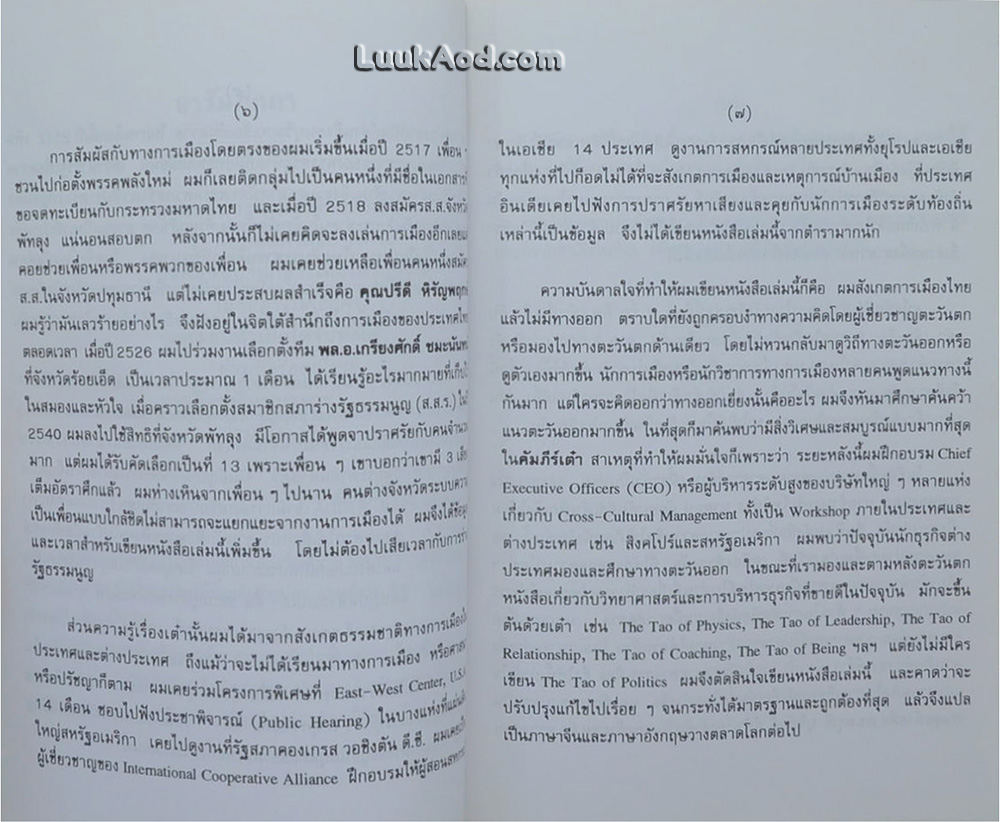 LuukAod.com
(๖)
การสัมผัสกับทางการเมืองโดยตรงของผมเริ่มขึ้นเมื่อปี 2517 เพื่อน ๆ
ชวนไปก่อตั้งพรรคพลังใหม่ ผมก็เลยติดกลุ่มไปเป็นคนหนึ่งที่มีชื่อในเอกสาร
ขอจดทะเบียนกับกระทรวงมหาดไทย และเมื่อปี 2518 ลงสมัครส.ส.จังหวัด
พัทลุง แน่นอนสอบตก หลังจากนั้นก็ไม่เคยคิดจะลงเล่นการเมืองอีกเลย
คอยช่วยเพื่อนหรือพรรคพวกของเพื่อน ผมเคยช่วยเหลือเพื่อนคนหนึ่งสมัคร
ส.ส.ในจังหวัดปทุมธานี แต่ไม่เคยประสบผลสำเร็จคือ คุณปรีดี หิรัญพฤกษ์
ผมรู้ว่ามันเลวร้ายอย่างไร จึงฝังอยู่ในจิตใต้สำนึกถึงการเมืองของประเทศไทย
ตลอดเวลา เมื่อปี 2526 ผมไปร่วมงานเลือกตั้งทีม พล.อ.เกรียงศักดิ์ ชมะนันทน์
ที่จังหวัดร้อยเอ็ด เป็นเวลาประมาณ 1 เดือน ได้เรียนรู้อะไรมากมายที่เก็บไว้
ในสมองและหัวใจ เมื่อคราวเลือกตั้งสมาชิกสภาร่างรัฐธรรมนูญ (ส.ส.ร.)
2540 ผมลงไปใช้สิทธิที่จังหวัดพัทลุง มีโอกาสได้พูดจาปราศรัยกับคนจำนวน
มาก แต่ผมได้รับคัดเลือกเป็นที่ 13 เพราะเพื่อน ๆ เขาบอกว่าเขามี 3 เสียง
เต็มอัตราศึกแล้ว ผมห่างเหินจากเพื่อน ๆ ไปนาน คนต่างจังหวัดระบบความ
เป็นเพื่อนแบบใกล้ชิดไม่สามารถจะแยกแยะจากงานการเมืองได้ ผมจึงได้ข้อมูล
และเวลาสำหรับเขียนหนังสือเล่มนี้เพิ่มขึ้น โดยไม่ต้องไปเสียเวลากับการร่าง
รัฐธรรมนูญ
ส่วนความรู้เรื่องเต๋านั้นผมได้มาจากสังเกตธรรมชาติทางการเมืองใน
ประเทศและต่างประเทศ ถึงแม้ว่าจะไม่ได้เรียนมาทางการเมือง หรือศาสนา
หรือปรัชญาก็ตาม ผมเคยร่วมโครงการพิเศษที่ East-West Center, U.S.A.
14 เดือน ชอบไปฟังประชาพิจารณ์ (Public Hearing) ในบางแห่งที่แผ่นดิน
ใหญ่สหรัฐอเมริกา เคยไปดูงานที่รัฐสภาคองเกรส วอชิงตัน ดี.ซี. ผมเคยเป็น
ผู้เชี่ยวชาญของ International Cooperative Alliance ฝึกอบรมให้ผู้สอนสหกรณ์
(๗)
ในเอเชีย 14 ประเทศ ดูงานการสหกรณ์หลายประเทศทั้งยุโรปและเอเชีย
ทุกแห่งที่ไปก็อดไม่ได้ที่จะสังเกตการเมืองและเหตุการณ์บ้านเมือง ที่ประเทศ
อินเดียเคยไปฟังการปราศรัยหาเสียงและคุยกับนักการเมืองระดับท้องถิ่น
เหล่านี้เป็นข้อมูล จึงไม่ได้เขียนหนังสือเล่มนี้จากตำรามากนัก
ความบันดาลใจที่ทำให้ผมเขียนหนังสือเล่มนี้ก็คือ ผมสังเกตการเมืองไทย
แล้วไม่มีทางออก ตราบใดที่ยังถูกครอบงำทางความคิดโดยผู้เชี่ยวชาญตะวันตก
หรือมองไปทางตะวันตกด้านเดียว โดยไม่หวนกลับมาดูวิถีทางตะวันออกหรือ
ดูตัวเองมากขึ้น นักการเมืองหรือนักวิชาการทางการเมืองหลายคนพูดแนวทางนี้
กันมาก แต่ใครจะคิดออกว่าทางออกเยี่ยงนั้นคืออะไร ผมจึงหันมาศึกษาค้นคว้า
แนวตะวันออกมากขึ้น ในที่สุดก็มาค้นพบว่ามีสิ่งวิเศษและสมบูรณ์แบบมากที่สุด
ในคัมภีร์เต๋า สาเหตุที่ทำให้ผมมั่นใจก็เพราะว่า ระยะหลังนี้ผมฝึกอบรม Chief
Executive Officers (CEO) หรือผู้บริหารระดับสูงของบริษัทใหญ่ ๆ หลายแห่ง
เกี่ยวกับ Cross-Cultural Management ทั้งเป็น Workshop ภายในประเทศและ
ต่างประเทศ เช่น สิงคโปร์และสหรัฐอเมริกา ผมพบว่าปัจจุบันนักธุรกิจต่าง
ประเทศมองและศึกษาทางตะวันออก ในขณะที่เรามองและตามหลังตะวันตก
หนังสือเกี่ยวกับวิทยาศาสตร์และการบริหารธุรกิจที่ขายดีในปัจจุบัน มักจะขึ้น
ต้นด้วยเต๋า เช่น The Tao of Physics, The Tao of Leadership, The Tao of
Relationship, The Tao of Coaching, The Tao of Being ฯลฯ แต่ยังไม่มีใคร
เขียน The Tao of Politics ผมจึงตัดสินใจเขียนหนังสือเล่มนี้ และคาดว่าจะ
ปรับปรุงแก้ไขไปเรื่อย ๆ จนกระทั่งได้มาตรฐานและถูกต้องที่สุด แล้วจึงแปล
เป็นภาษาจีนและภาษาอังกฤษวางตลาดโลกต่อไป